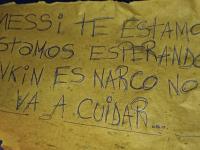 MESSI TE ESTAMO
ESTAMOS ESPERANDO
VKIN ES NARCO NO
VA A CUIDAR...